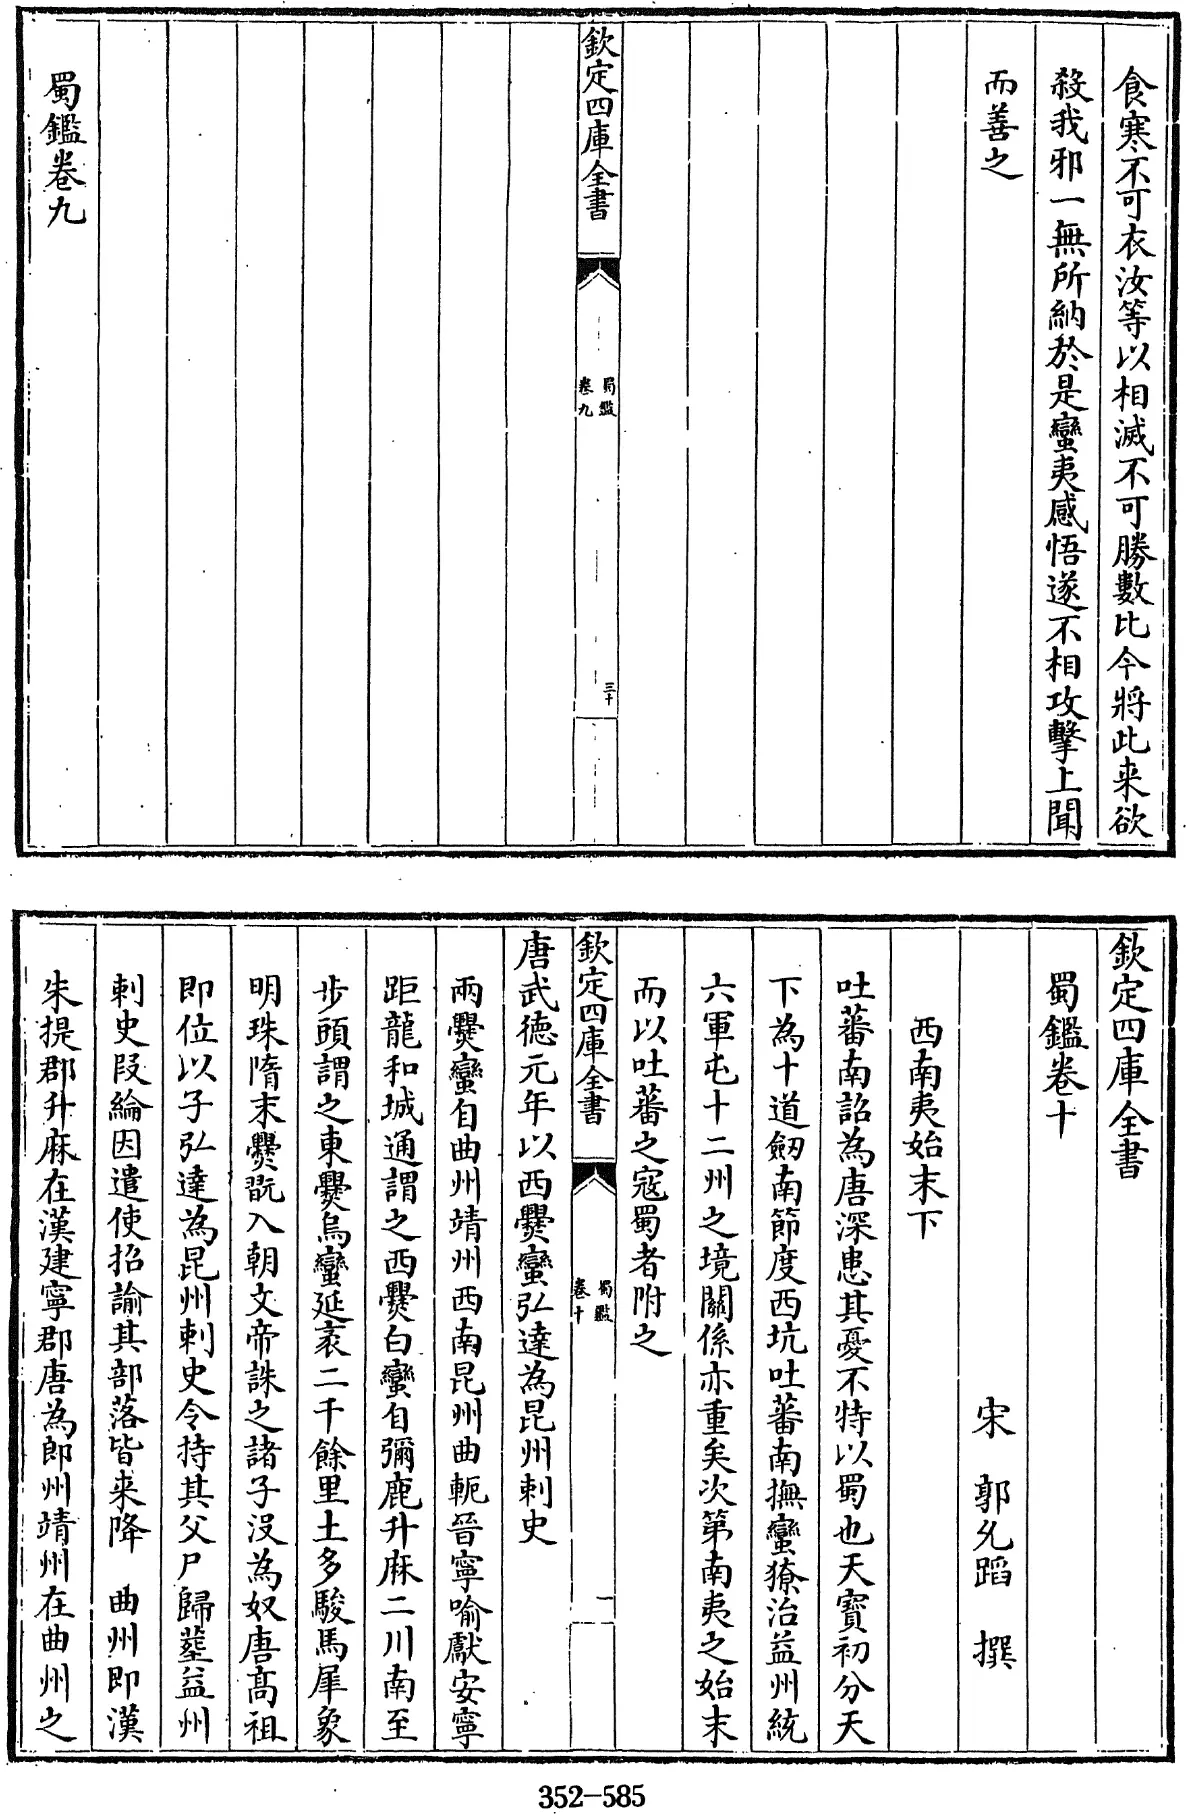 食寒不可衣汝等以相滅不可勝數比今將此来欲
殺我邪一無所納於是蠻夷感悟遂不相攻擊上聞
而善之
欽定四庫全書
蜀鑑
卷九
三十
蜀鑑卷九
欽定四庫全書
蜀鑑卷十
宋 郭允蹈 撰
西南夷始末下
吐蕃南詔為唐深患其憂不特以蜀也天寶初分天
下為十道劒南節度西坑吐蕃南撫蠻獠治益州統
六軍屯十二州之境關係亦重矣次第南夷之始末
而以吐蕃之宼蜀者附之
欽定四庫全書
蜀鑑
卷十
一
唐武徳元年以西㸑蠻弘達為昆州刺史
兩㸑蠻自曲州靖州西南昆州曲軛晉寧喻獻安寧
距龍和城通謂之西㸑白蠻自彌鹿升麻二川南至
步頭謂之東㸑烏蠻延袤二千餘里土多駿馬犀象
明珠隋末㸑翫入朝文帝誅之諸子沒為奴唐髙祖
即位以子弘達為昆州刺史令持其父尸歸塟益州
刺史叚綸因遣使招諭其部落皆来降 曲州即漢
朱提郡升麻在漢建寧郡唐為郎州靖州在曲州之
352-585